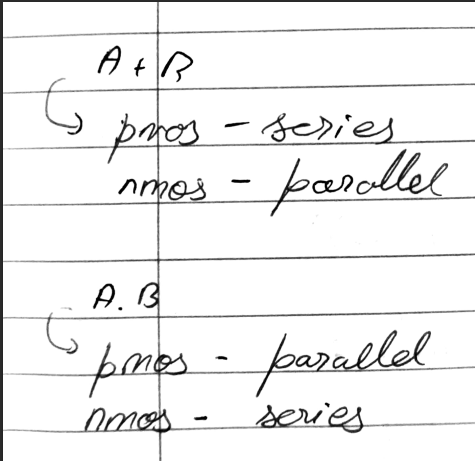 A + B
pmos - series
nmos - parallel
A. B
pmos - parallel
nmos - series